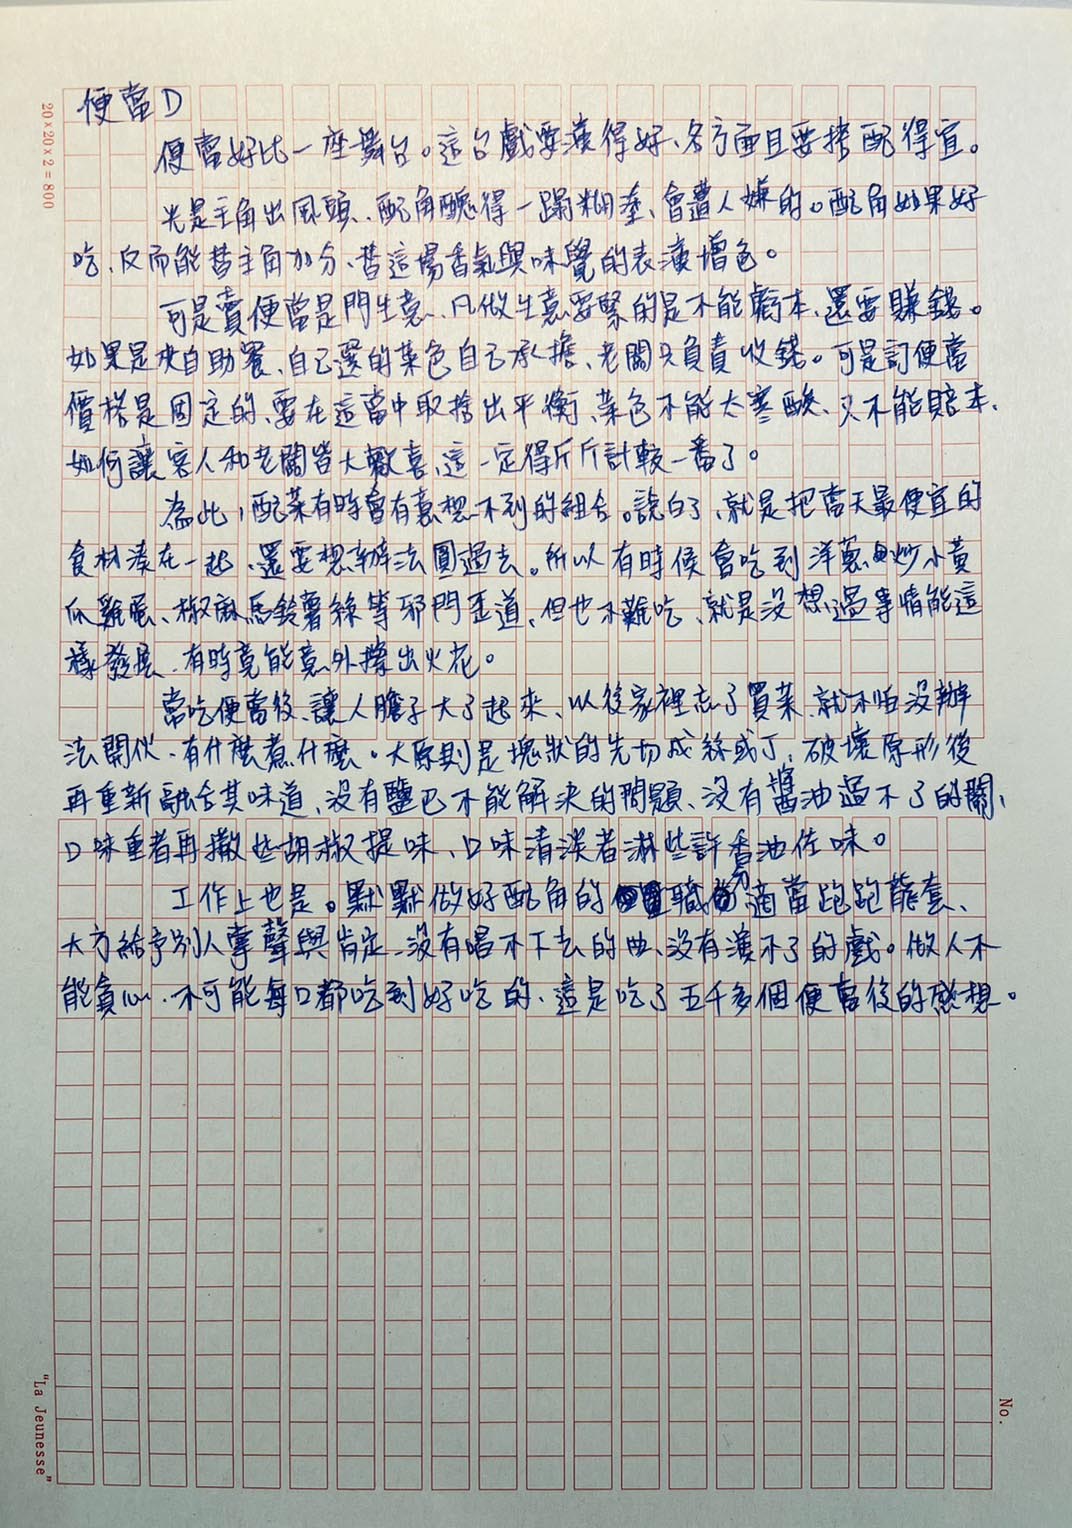 便當D
便當好比一座舞台。這台戲要演得好、各方面且要搭配得宜。
光是主角出風頭、配角醜得一蹋糊塗、會遭人嫌的。配角如果好
吃、反而能替主角加分、替這場香氣與味覺的表演增色。
可是賣便當是門生意、凡做生意要緊的是不能虧本、還要賺錢。
如果是夾自助餐、自己選的菜色自己承擔、老闆只負責收錢。可是訂便當
價格是固定的、要在這當中取捨出平衡、菜色不能太寒酸、又不能賠本、
如何讓客人和老闆皆大歡喜、這一定得斤斤計較一番了。
為此,配菜有時會有意想不到的組合。說白了、就是把當天最便宜的
食材湊在一起、還要想辦法圓過去。所以有時候會吃到洋蔥炒小黃
瓜雞蛋、椒麻馬鈴薯絲等邪門歪道、但也不難吃、就是沒想過事情能這
樣發展、有時竟能意外擦出火花。
常吃便當後、讓人膽子大了起來、以後家裡忘了買菜、就不怕沒辦
法開伙、有什麼煮什麼。大原則是塊狀的先切成絲或丁、破壞原形後
再重新融合其味道、沒有鹽巴不能解決的問題、沒有醬油過不了的關、
口味重者再撒些胡椒提味、口味清淡者淋些許香油佐味。
工作上也是。默默做好配角的職分適當跑跑龍套、
大方給予別人掌聲與肯定、沒有唱不下去的曲、沒有演不了的戲。做人不
能貪心、不可能每口都吃到好吃的、這是吃了五千多個便當後的感想。
20×20×2=800
"La Jeunesse"
No.